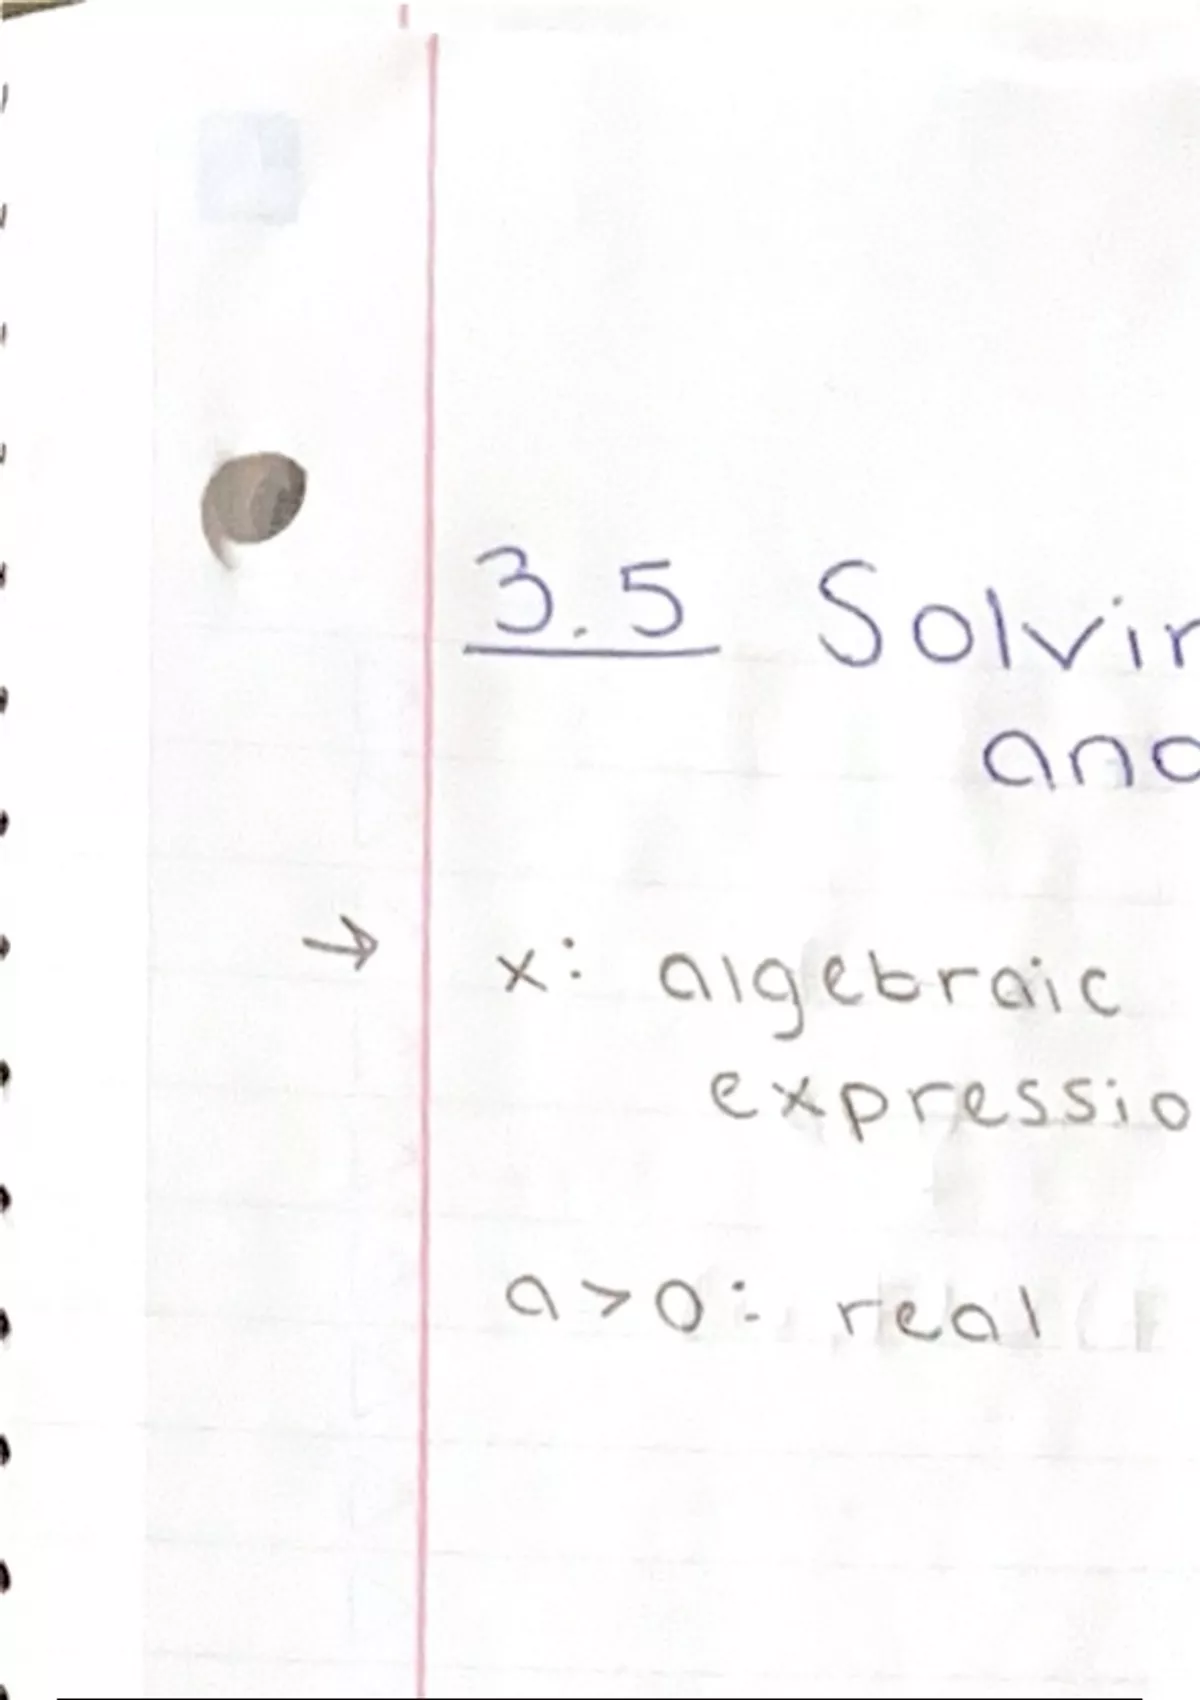 3.5 Solvin
and
→ x: algebraic
expressio
a>0: real